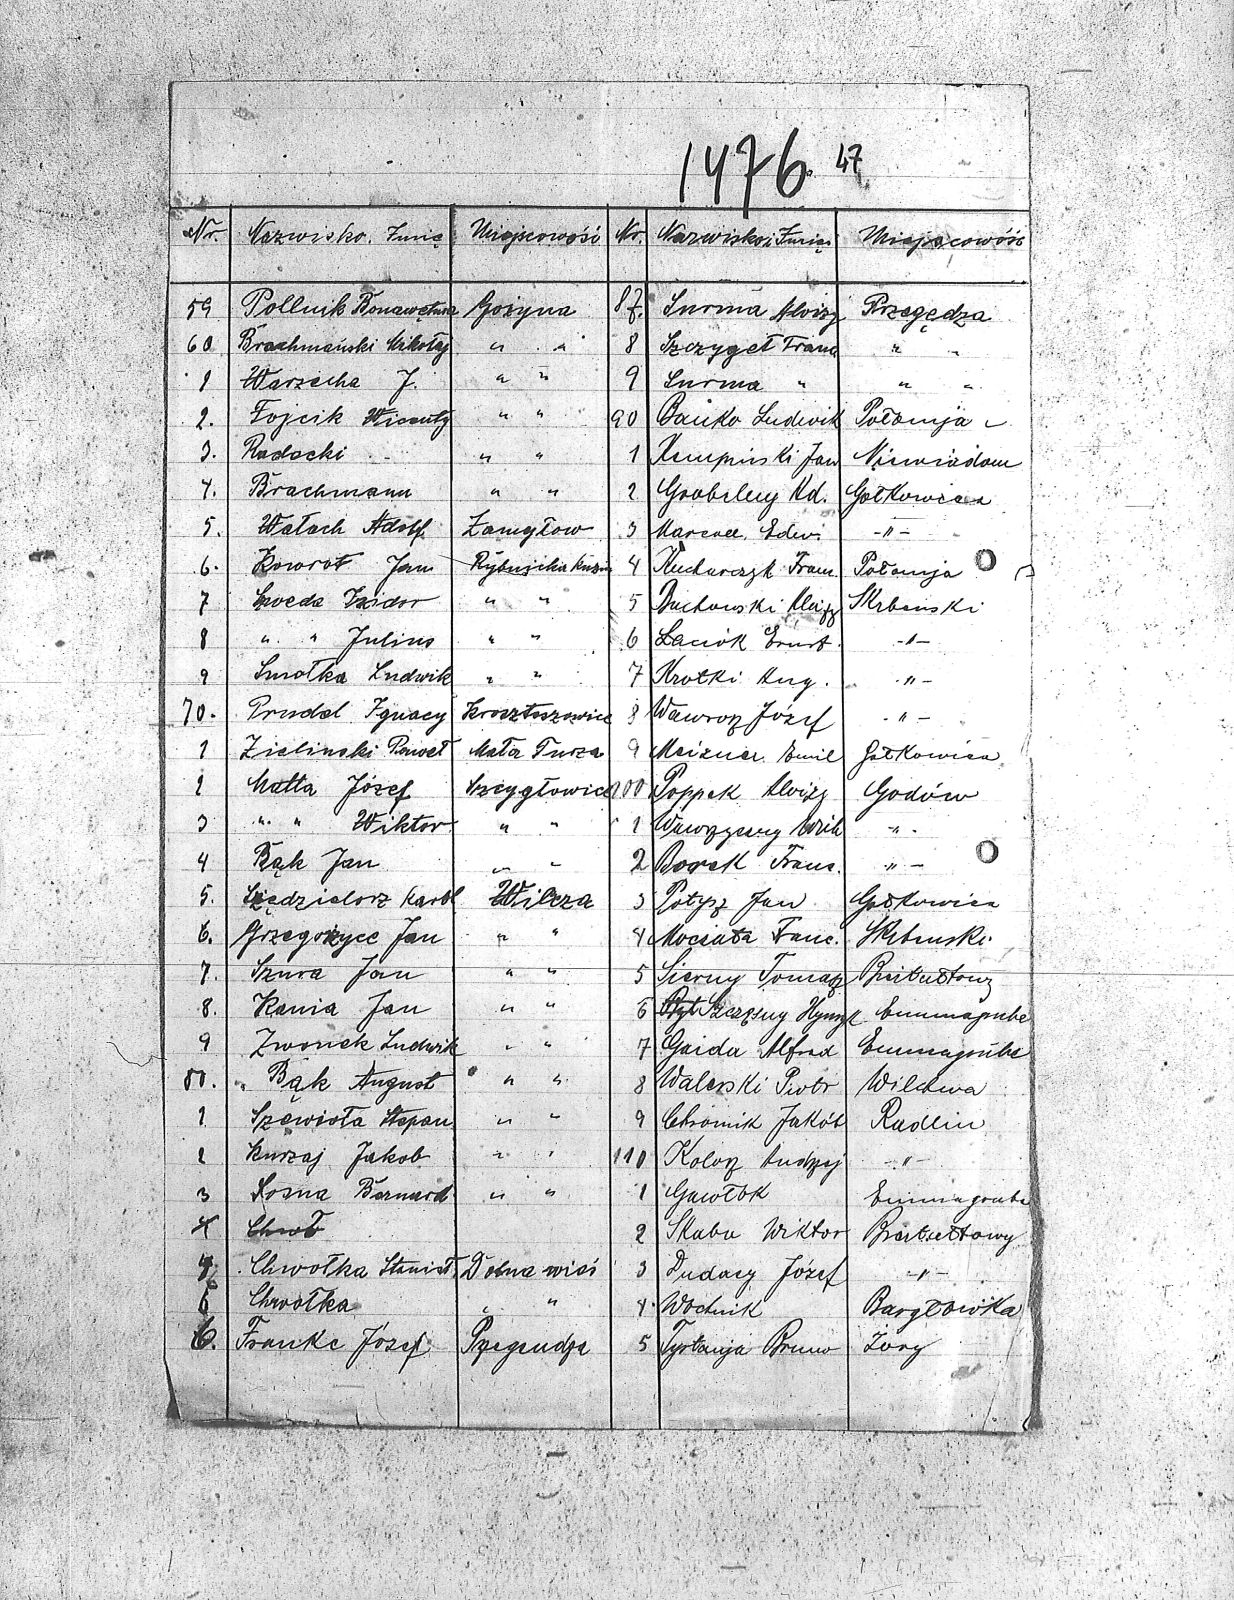 1476. 47
Nr. Nazwisko. Imię Miejscowość Nr. Nazwisko i Imię Miejscowość
59 Pollnik Bonawętura Gożyna 87. Surma Alojzy Przegędza
60 Brachmański Mikołaj " " 8 Szczygeł Franc " "
1 Warzecha J. " " 9 Surma " " "
2. Fojcik Wicenty " " 90 Bańko Ludwik Połomja
3. Radecki " " 1 Kempiński Jan Niewiadom
4. Brachmann " " 2 Gołkowice
5. Wałach Adolf Zamyłow 3 Edw. -"-
6. Kowrot Jan Rybnicka 4 Kucharczyk Franc. Połomja
7 Szweda Izidor " " 5 Buchowski Alojzy Skrbeński
8 " " Julius " " 6 Laciok Ernst -"-
9 Smołka Ludwik " " 7 Krotki Aug. -"-
70. Prudel Ignacy Krosztoszowice 8 Wawrzy Józef -"-
1 Zieliński Paweł Mała Turza 9 Meisner Emil Gołkowice
2 Matta Józef Szczygłowice 100 Poppek Alojzy Godów
3 " " Wiktor " " 1 Wawrzyczny -"-
4 Bąk Jan " " 2 Borek Franc. -"-
5. Karol Wilcza 3 Potysz Jan Gołkowice
6. Grzegorzyce Jan " " 4 Mociała Franc. Skrbenski
7. Sznra Jan " " 5 Sierny Tomasz Birtułtowy
8. Kania Jan " " 6 Szczęsny Emmagrube
9 Zwonek Ludwik " " 7 Gaida Alfred Emmagrube
80. Bąk August " " 8 Walerski Piotr Wilchwa
1 Szewioła Stepan " " 9 Chromik Jakób Radlin
2 Kurzaj Jakob " " 110 Kolorz Andrzej -"-
3 Sosna Bernard " " 1 Gawlok Emmagrube
4 Chwoł 2 Skaba Wiktor Birtułtowy
4. Chwołka Stanisł. Dolna wieś 3 Dudacy Józef -"-
5 Chwołka " " 4. Wodnik Bargłówka
6. Franke Józef Przegendza 5 Tystanja Bruno Żory